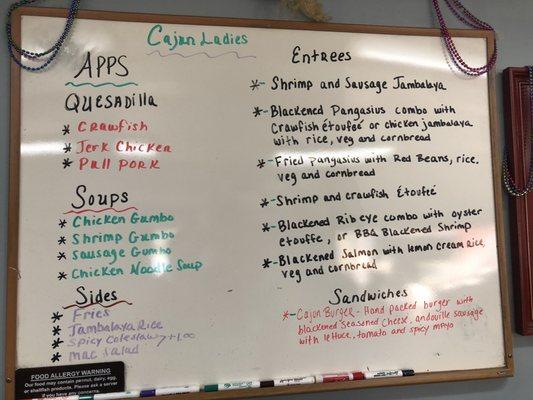 Cajun Ladies
APPS
QUESADILLA
* CRawfish
* Jerk Chicken
* Pull PORK
Soups
* Chicken Gumbo
* Shrimp Gumbo
* Sausage Gumbo
* Chicken Noodle Soup
Sides
* Fries
* Jambalaya Rice
* Spicy Coleslaw +1.00
* Mac Salad
FOOD ALLERGY WARNING
Our food may contain peanut, dairy, egg,
or shellfish products. Please ask server
if you have any concerns.
Entrees
*- Shrimp and Sausage Jambalaya
*- Blackened Pangasius combo with
Crawfish étouffée or chicken jambalaya
with rice, veg and cornbread
*- Fried Pangasius with Red Beans, rice,
veg and cornbread
*- Shrimp and crawfish Étouffée
*- Blackened Rib eye combo with oyster
etouffe, or BBQ Blackened Shrimp
*- Blackened Salmon with lemon cream Rice,
veg and cornbread
Sandwiches
*- Cajun Burger - Hand packed burger with
blackened seasoned cheese, andouille sausage
with lettuce, tomato and spicy mayo